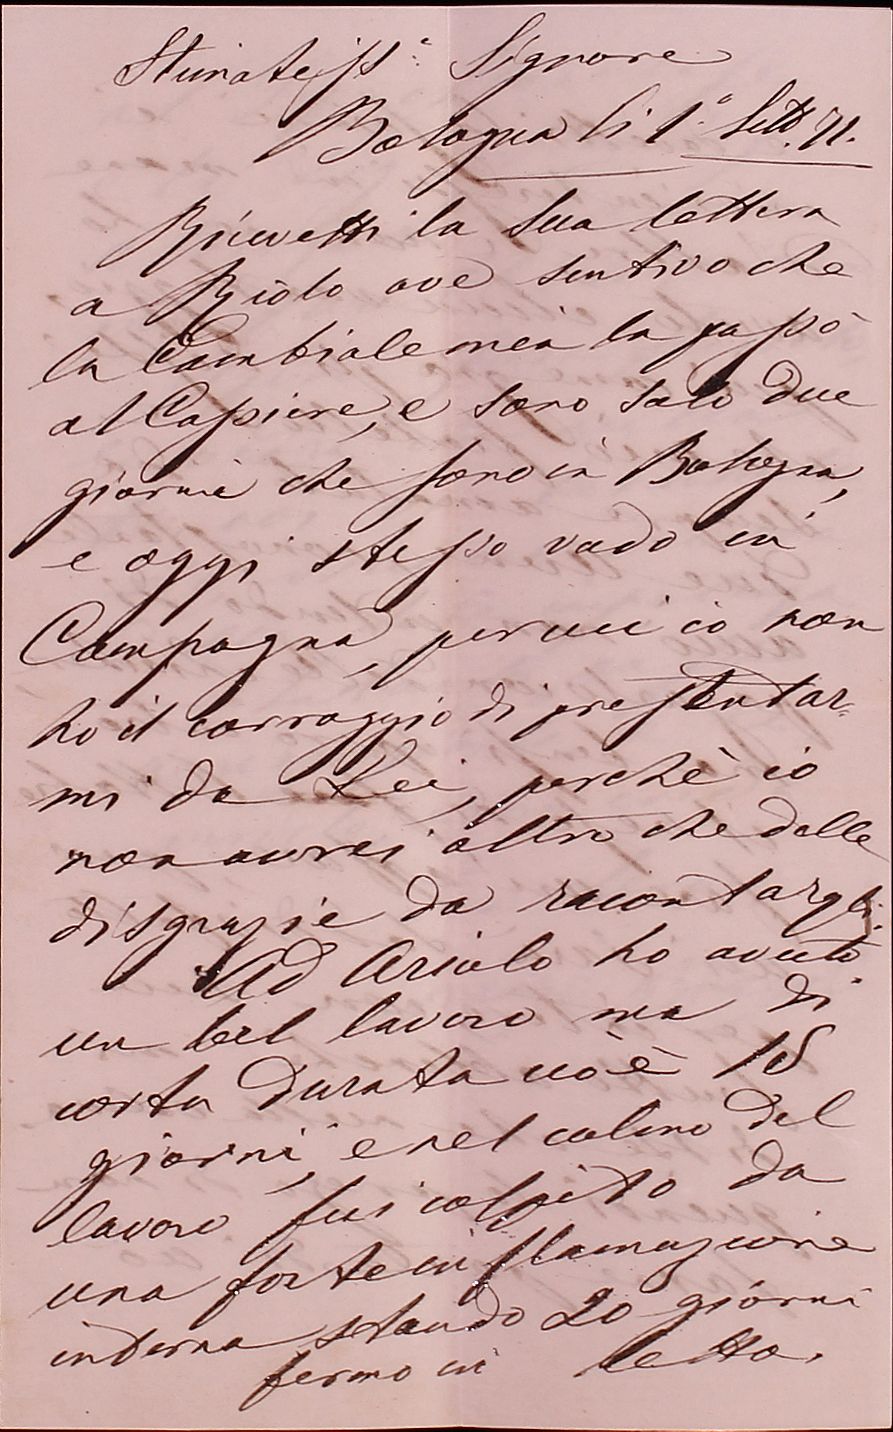 Stimatiss.e Signore
Bologna li 1.o Sett. 71.
Ricevetti la Sua lettera
a Riolo ove sentivo che
la Cambiale mia la passò
al Cassiere, e sono solo due
giorni che sono in Bologna,
e oggi stesso vado in
Campagna, perciui io non
ho il corraggio di presentar-
mi da Lei, perchè io
non avrei altro che delle
disgrazie da racontargli.
Ad Ariolo ho avuto
un bel lavoro ma di
corta durata cioè 15
giorni, e nel colmo del
lavoro fui colpito da
una forte inflamazione
interna stando 20 giorni
fermo in letto.